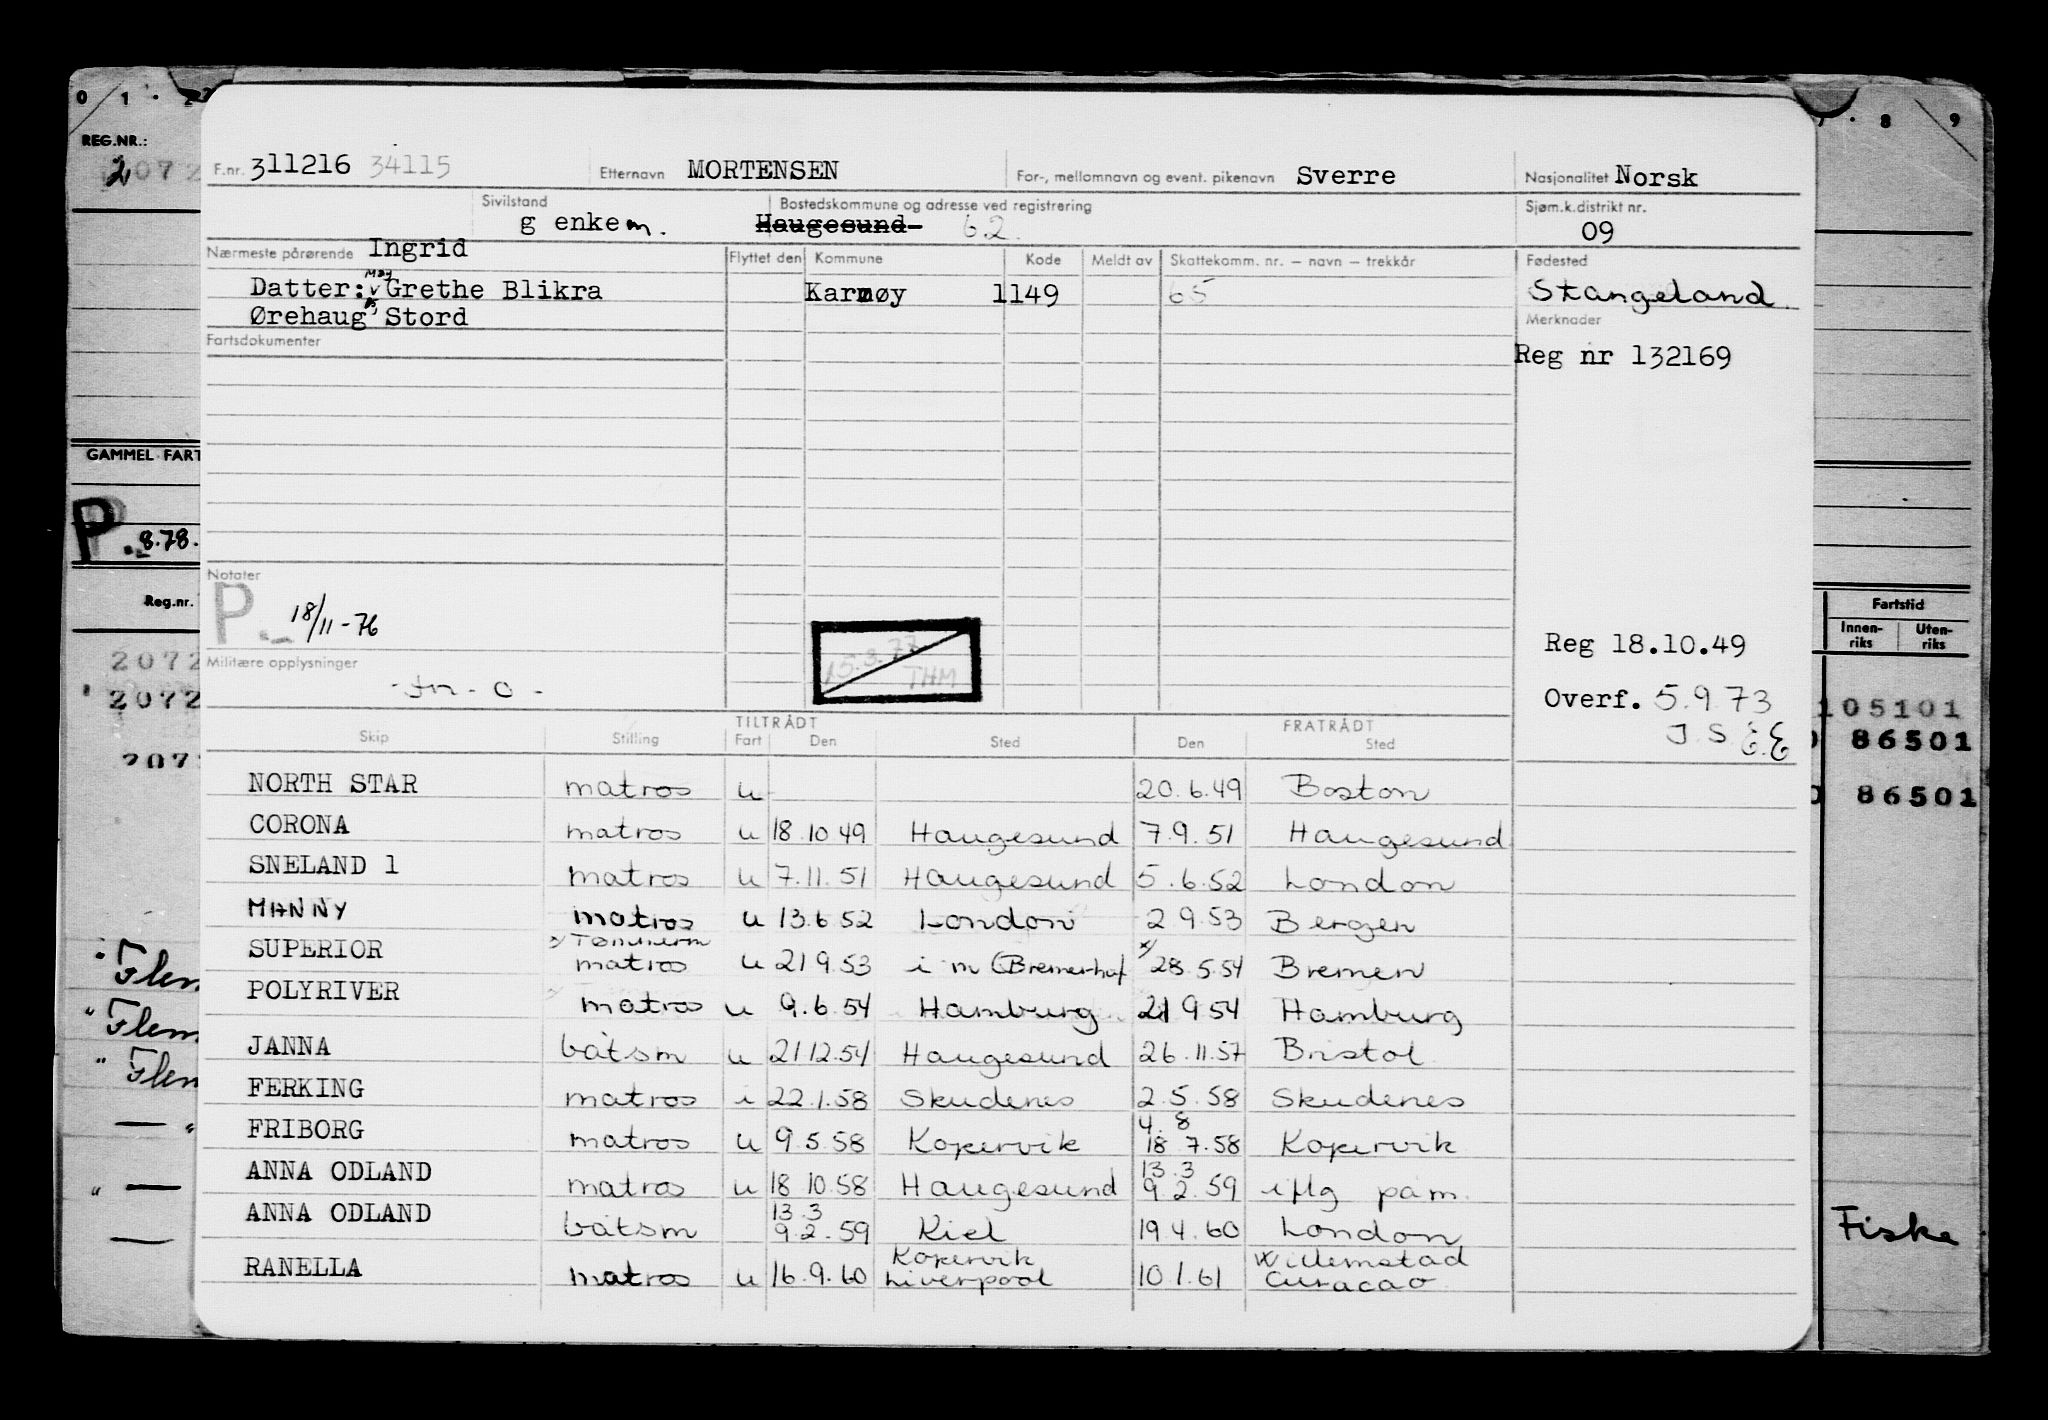 0 1 . 2
. 8 9
REG.NR.:
2072
F.nr. 311216 34115 Etternavn MORTENSEN For-, mellomnavn og event. pikenavn Sverre Nasjonalitet Norsk
Sivilstand g enkem. Bostedskommune og adresse ved registrering Haugesund 62. Sjøm.k.distrikt nr. 09
Nærmeste pårørende Ingrid Flyttet den Kommune Kode Meldt av Skattekomm. nr. – navn – trekkår Fødested
Datter: May Grethe Blikra Karmøy 1149 65 Stangeland.
Ørehaug, Stord Merknader
Fartsdokumenter Reg nr 132169
GAMMEL FART
P. 8.78.
Notater
P. 18/11-76
Reg.nr. Fartstid
Innen-riks Uten-riks
15.3.77 THM
Reg 18.10.49
Militære opplysninger
2072
2072
2072
Overf. 5.9.73
J.S. E.E
105101
86501
86501
TILTRÅDT FRATRÅDT
Skip Stilling Fart Den Sted Den Sted
NORTH STAR matros u 20.6.49 Boston
CORONA matros u 18.10.49 Haugesund 7.9.51 Haugesund
SNELAND 1 matros u 7.11.51 Haugesund 5.6.52 London
MANNY matros u 13.6.52 London 2.9.53 Bergen
SUPERIOR x/ Tømmerm matros u 21.9.53 i m (Bremerhaf x/ 28.5.54 Bremen
POLYRIVER matros u 9.6.54 Hamburg 21.9.54 Hamburg
JANNA båtsm u 21.12.54 Haugesund 26.11.57 Bristol
FERKING matros i 22.1.58 Skudenes 2.5.58 Skudenes
4.8
FRIBORG matros u 9.5.58 Kopervik 18.7.58 Kopervik
13.3
ANNA ODLAND matros u 18.10.58 Haugesund 9.2.59 iflg påm.
13.3
ANNA ODLAND båtsm 9.2.59 Kiel 19.4.60 London
Kopervik Willemstad
RANELLA matros u 16.9.60 Liverpool 10.1.61 Curacao
" Flem
" Flem
" Flem
— "
" —
—
Fiske